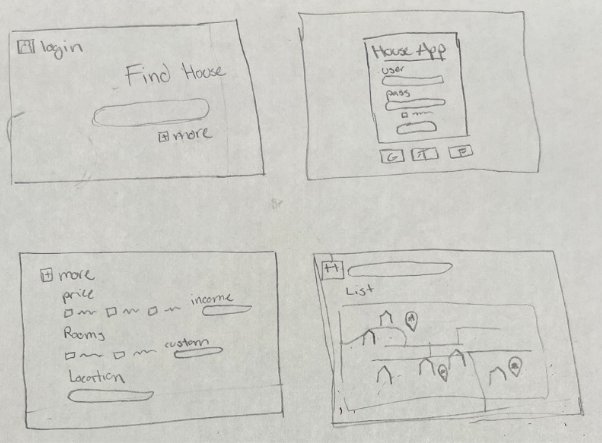 login
Find House
more
House App
user
pass
G
F
more
price
income
Rooms
custom
Location
H
List